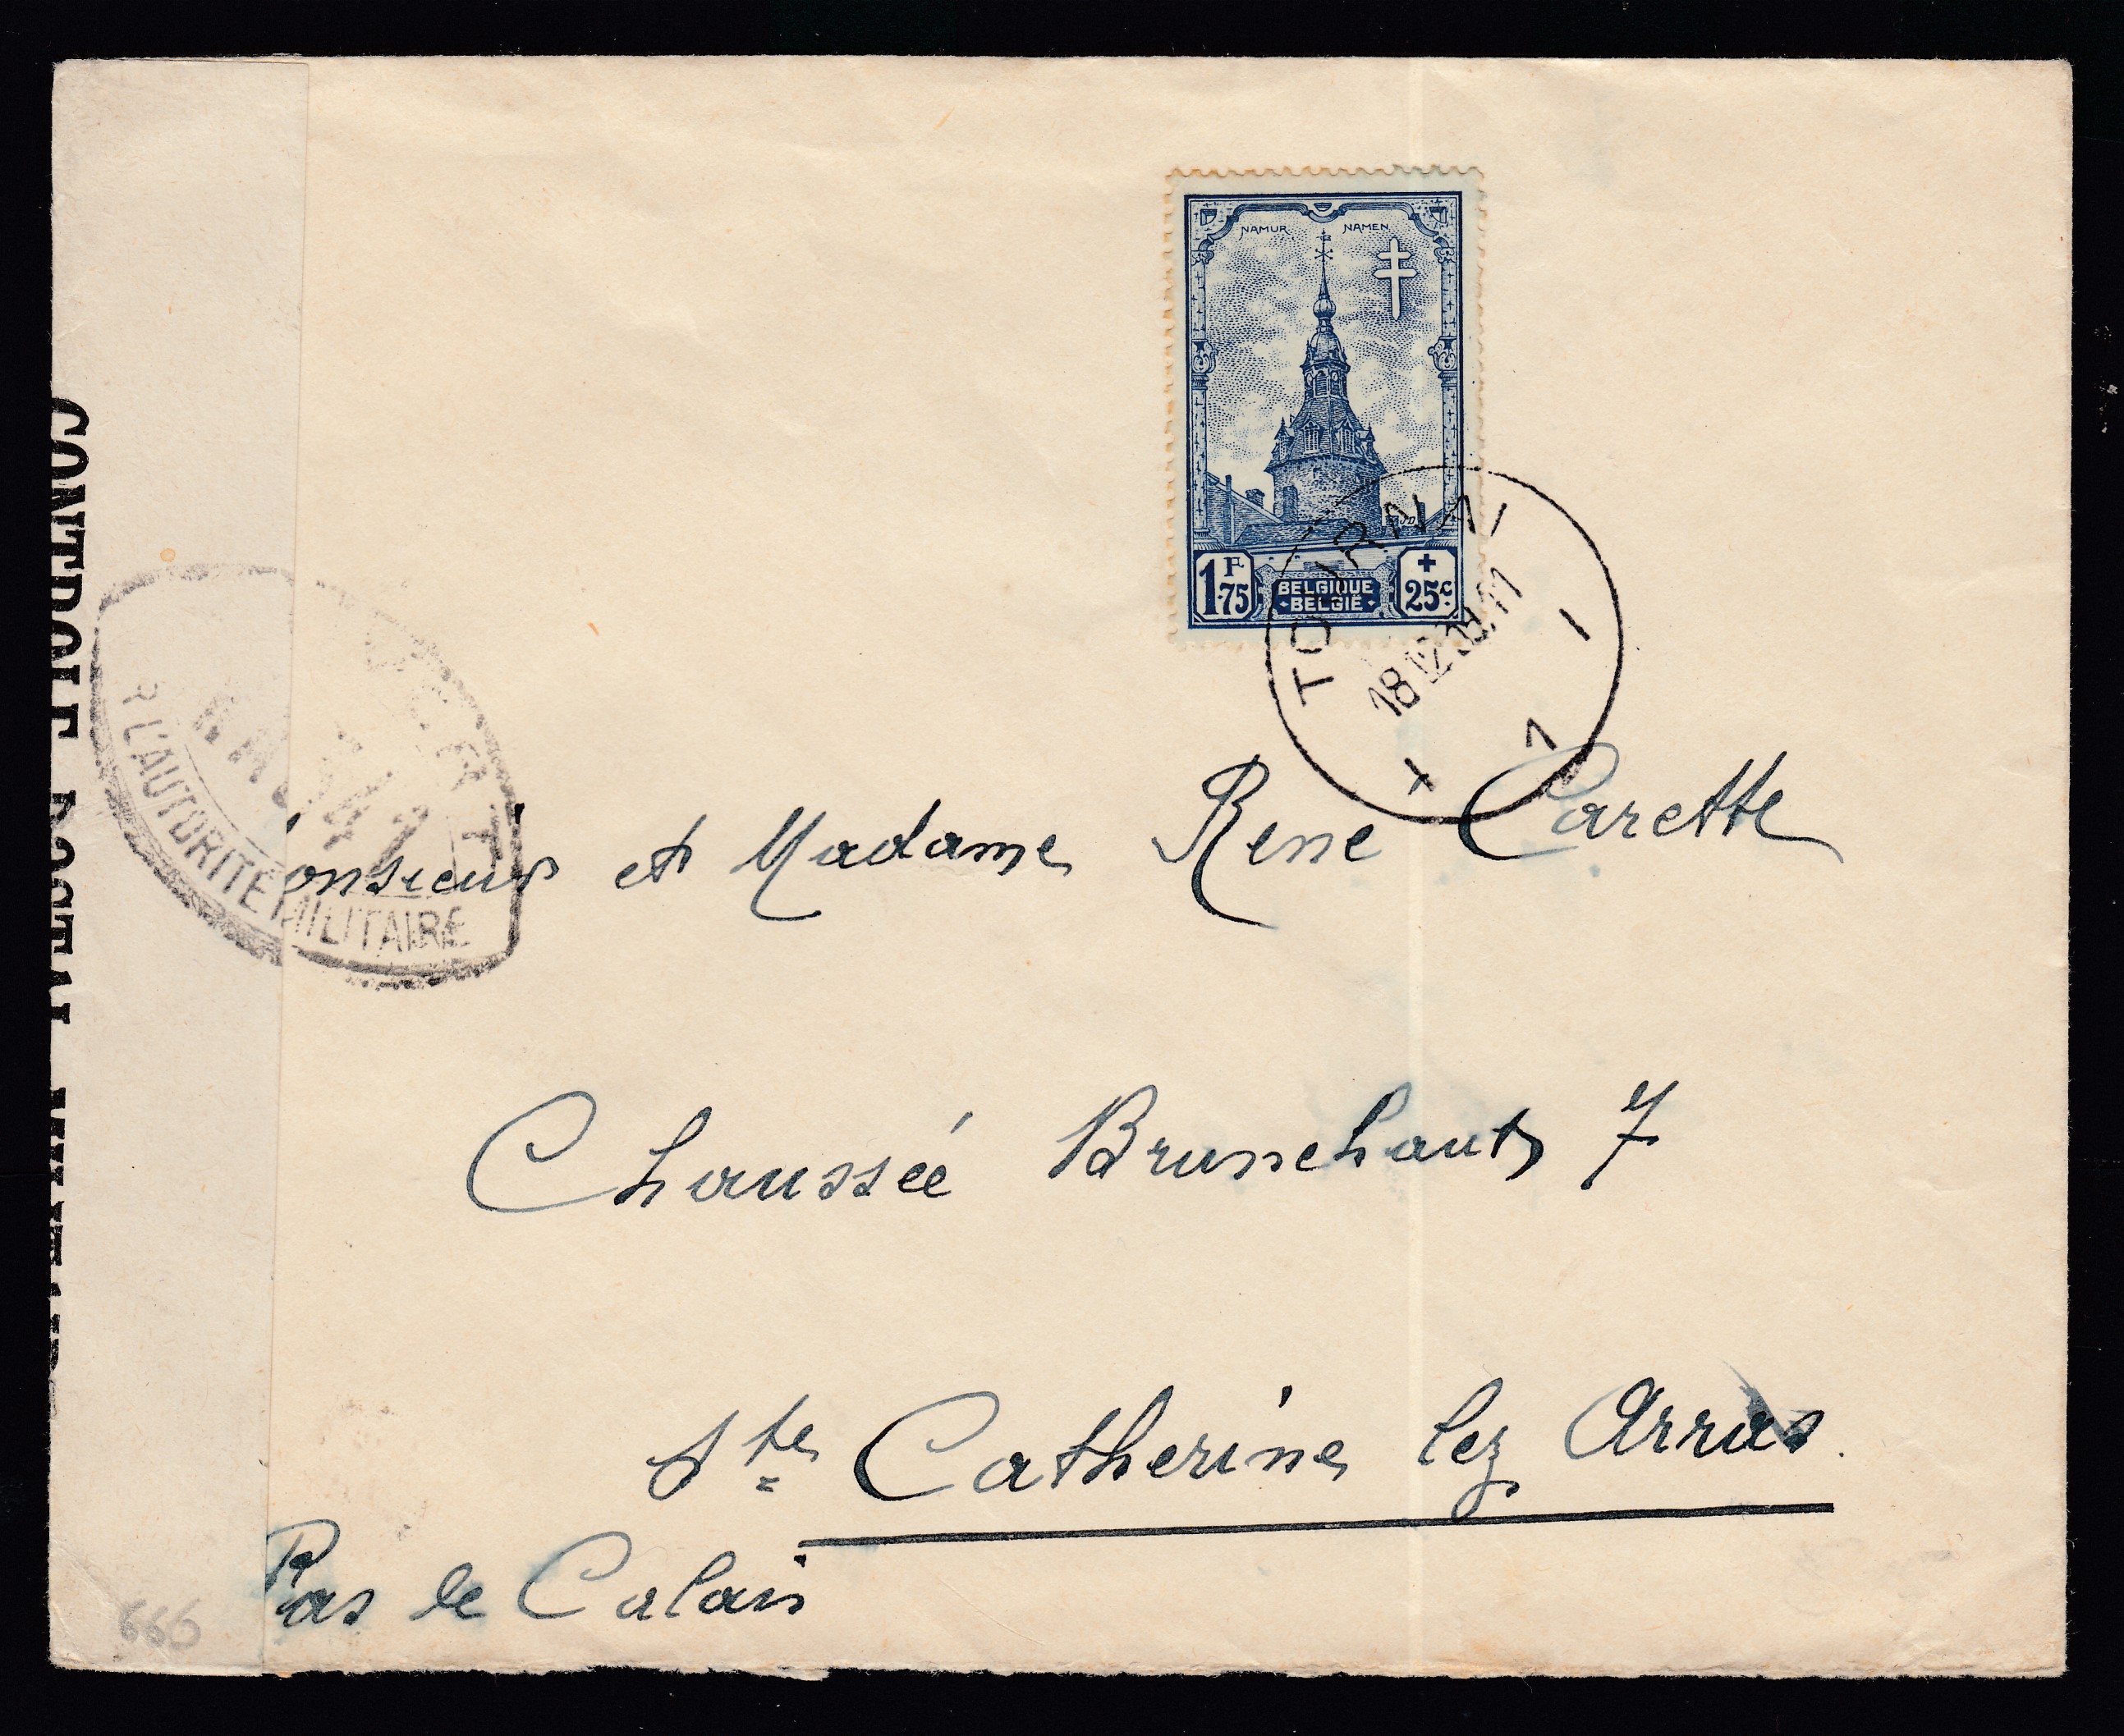 NAMUR NAMEN
1F75
BELGIQUE
BELGIË
+
25c
TOURNAI
1 1
CONTROLE POSTAL MILITAIRE
OUVERT
R L'AUTORITE MILITAIRE
Monsieur et Madame Rene Carette
Chaussée Brunehaut 7
Ste Catherine lez Arras.
Pas de Calais
666